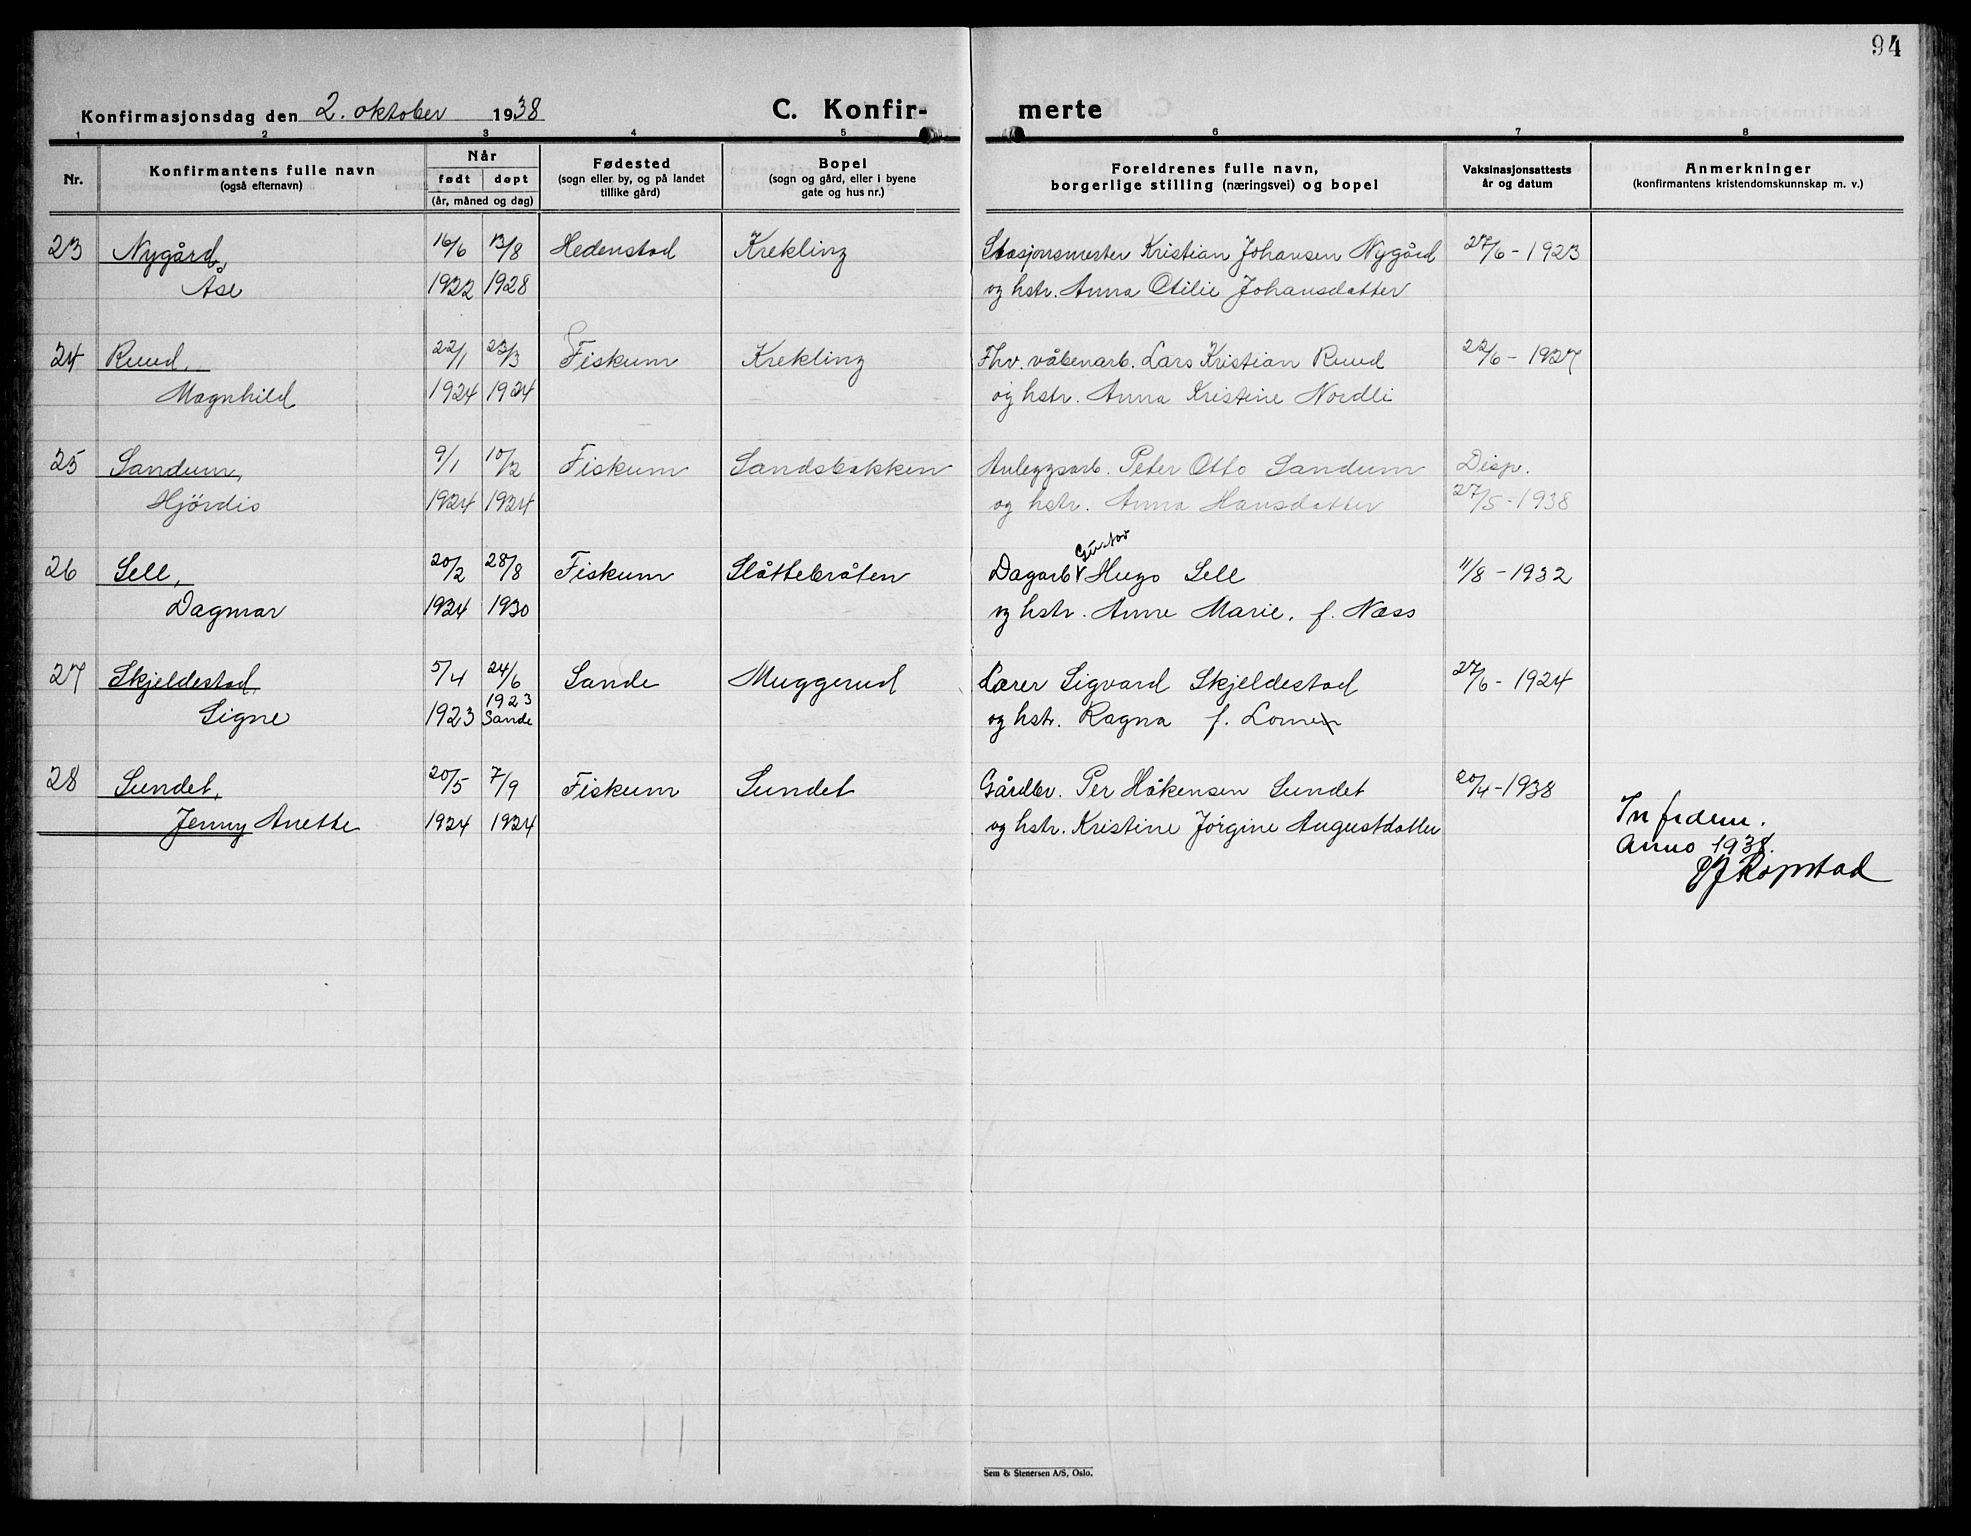 94
Konfirmasjonsdag den 2. oktober 1938
C. Konfir- merte
1 2 3 4 5 6 7 8
Nr.
Konfirmantens fulle navn
(også efternavn)
Når
født døpt
(år, måned og dag)
Fødested
(sogn eller by, og på landet
tillike gård)
Bopel
(sogn og gård, eller i byene
gate og hus nr.)
Foreldrenes fulle navn,
borgerlige stilling (næringsvei) og bopel
Vaksinasjonsattests
år og datum
Anmerkninger
(konfirmantens kristendomskunnskap m. v.)
23 Nygård, 16/6 13/8 Hedenstad Krekling Stasjonsmester Kristian Johansen Nygård 27/6 - 1923
Åse 1922 1928 og hstr. Anna Otilie Johansdatter
24 Ruud, 22/1 23/3 Fiskum Krekling Fhv. våbenarb. Lars Kristian Ruud 22/6 - 1927
Magnhild 1924 1924 og hstr. Anna Kristine Nordli
25 Sandum, 9/1 10/2 Fiskum Sandsbakken Anleggsarb. Peter Otto Sandum Disp.
Hjördis 1924 1924 og hstr. Anna Hansdatter 27/5 - 1938
Gustav
26 Sell, 20/2 28/8 Fiskum Slåttebråten Dagarb. Hugo Sell 11/8 - 1932
Dagmar 1924 1930 og hstr. Anne Marie, f. Næss
27 Skjeldestad, 5/4 24/6 Sande Muggerud Lærer Sigvard Skjeldestad 27/6 - 1924
1923
Signe 1923 Sande og hstr. Ragna f. Lomen
28 Sundet, 20/5 7/9 Fiskum Sundet Gårdbr. Per Håkensen Sundet 20/4 - 1938
Jenny Anette 1924 1924 og hstr. Kristine Jörgine Augustdatter
In fidem.
Anno 1938.
Ropstad
Sem & Stenersen A/S, Oslo.